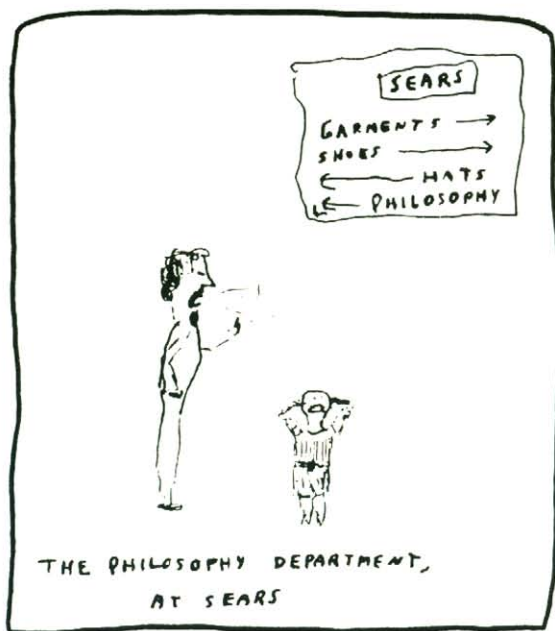 SEARS
GARMENTS →
SHOES →
← HATS
← PHILOSOPHY
THE PHILOSOPHY DEPARTMENT,
AT SEARS